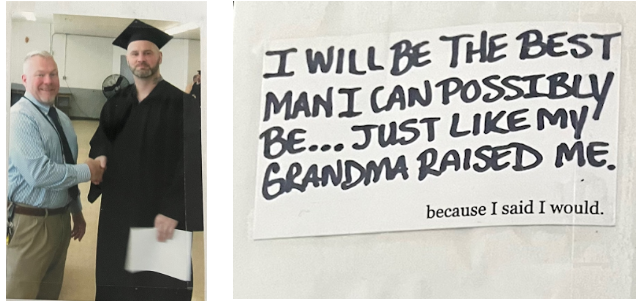 I WILL BE THE BEST
MAN I CAN POSSIBLY
BE... JUST LIKE MY
GRANDMA RAISED ME.
because I said I would.